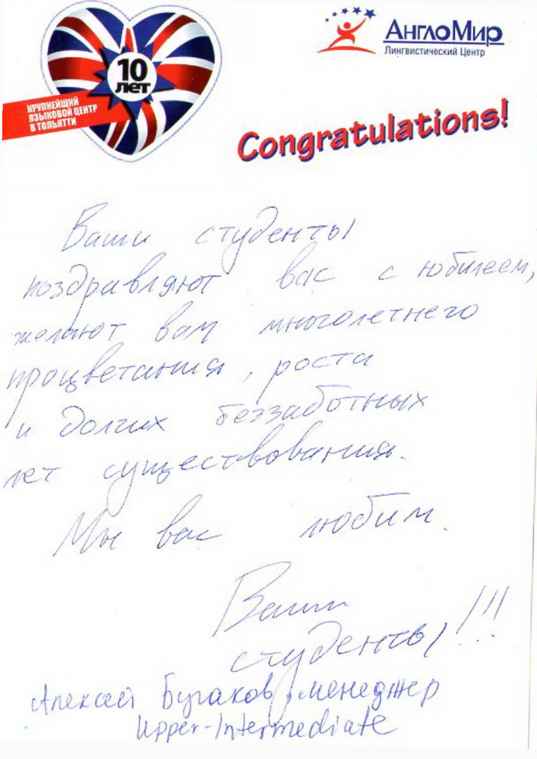 10
лет
КРУПНЕЙШИЙ
ЯЗЫКОВОЙ ЦЕНТР
В ТОЛЬЯТТИ
АнглоМир
Лингвистический Центр
Congratulations!
Ваши студенты
поздравляют вас с юбилеем,
желают вам многолетнего
процветания, роста
и долгих беззаботных
лет существования.
Мы вас любим.
Ваши
студенты!!!
Алексей Бугаков, менеджер
Upper-Intermediate